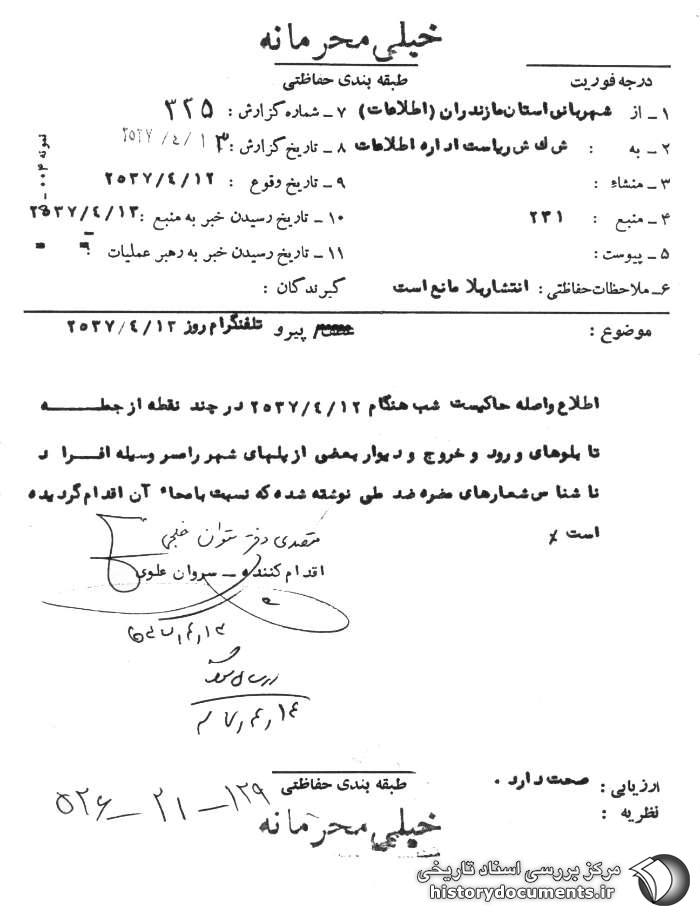 خیلی محرمانه
طبقه بندی حفاظتی
درجه فوریت
۱ـ از شهربانی استان مازندران (اطلاعات)
۷ـ شماره گزارش : ۳۲۵
۲ـ به : ش ك ش ریاست اداره اطلاعات
۸ـ تاریخ گزارش : ۲۵۳۷/٤/۱۳
۳ـ منشاء :
۹ـ تاریخ وقوع : ۲۵۳۷/٤/۱۲
۴ـ منبع : ۲۳۱
۱۰ـ تاریخ رسیدن خبر به منبع : ۲۵۳۷/٤/۱۳
۵ـ پیوست :
۱۱ـ تاریخ رسیدن خبر به رهبر عملیات :
۶ـ ملاحظات حفاظتی : انتشار بلا مانع است
گیرندگان :
نمونه
موضوع : پیرو تلفنگرام روز ۲۵۳۷/٤/۱۳
اطلاع واصله حاکیست شب هنگام ۲۵۳۷/٤/۱۲ در چند نقطه از جمله
تابلوهای ورود و خروج و دیوار بعضی از پلهای شهر رامسر وسیله افراد
ناشناس شعارهای مضره ضد ملی نوشته شده که نسبت بامحاء آن اقدام گردیده
است
متصدی دفتر ستوان
اقدام کننده ـ سروان علوی
ارزیابی : صحت دارد .
نظریه :
طبقه بندی حفاظتی
۵۲۶ـ ۲۱ـ ۱۲۹
خیلی محرمانه
مرکز بررسی اسناد تاریخی
historydocuments.ir